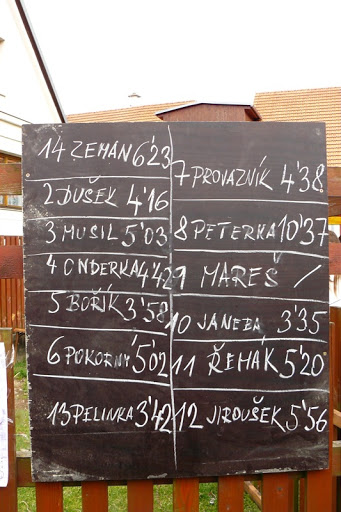 14 ZEMAN 6'23
2 DUŠEK 4'16
3 MUSIL 5'03
4 ONDERKA 4'42
5 BOŘÍK 3'58
6 POKORNÝ 5'02
13 PELINKA 3'42
7 PROVAZNÍK 4'38
8 PETERKA 10'37
9 MAREŠ /
10 JANEBA 3'35
11 ŘEHÁK 5'20
12 JIROUŠEK 5'56